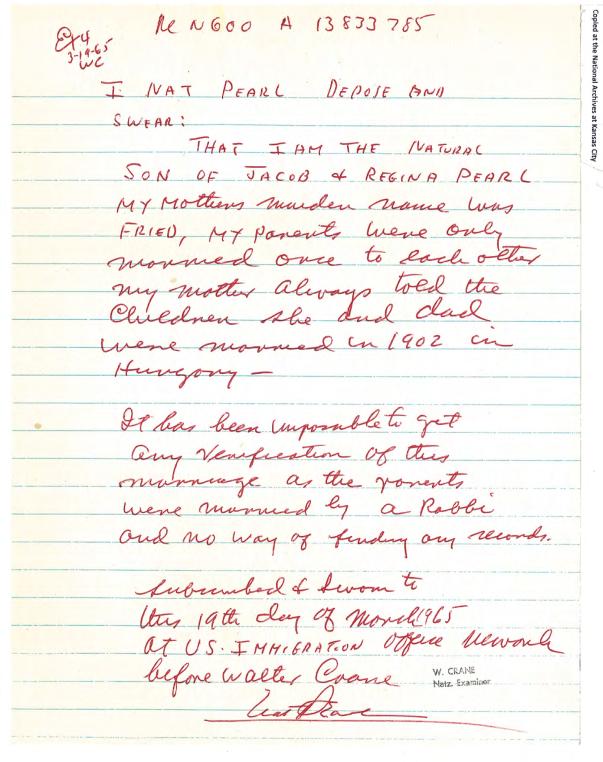 Re N600 A 13 833 785
Ex 4
3-19-65
WC
I NAT PEARL DEPOSE AND
SWEAR:
THAT I AM THE NATURAL
SON OF JACOB & REGINA PEARL
MY Mothers maiden name was
FRIED, MY parents were only
married once to each other
my mother always told the
Children she and dad
were married in 1902 in
Hungary —
It has been impossible to get
any verification of this
marriage as the parents
were married by a Rabbi
and no way of finding any records.
Subscribed & Sworn to
this 19th day of March 1965
AT US. IMMIGRATION office Newark
before Walter Crane
W. CRANE
Natz. Examiner
Nat Pearl
Copied at the National Archives at Kansas City